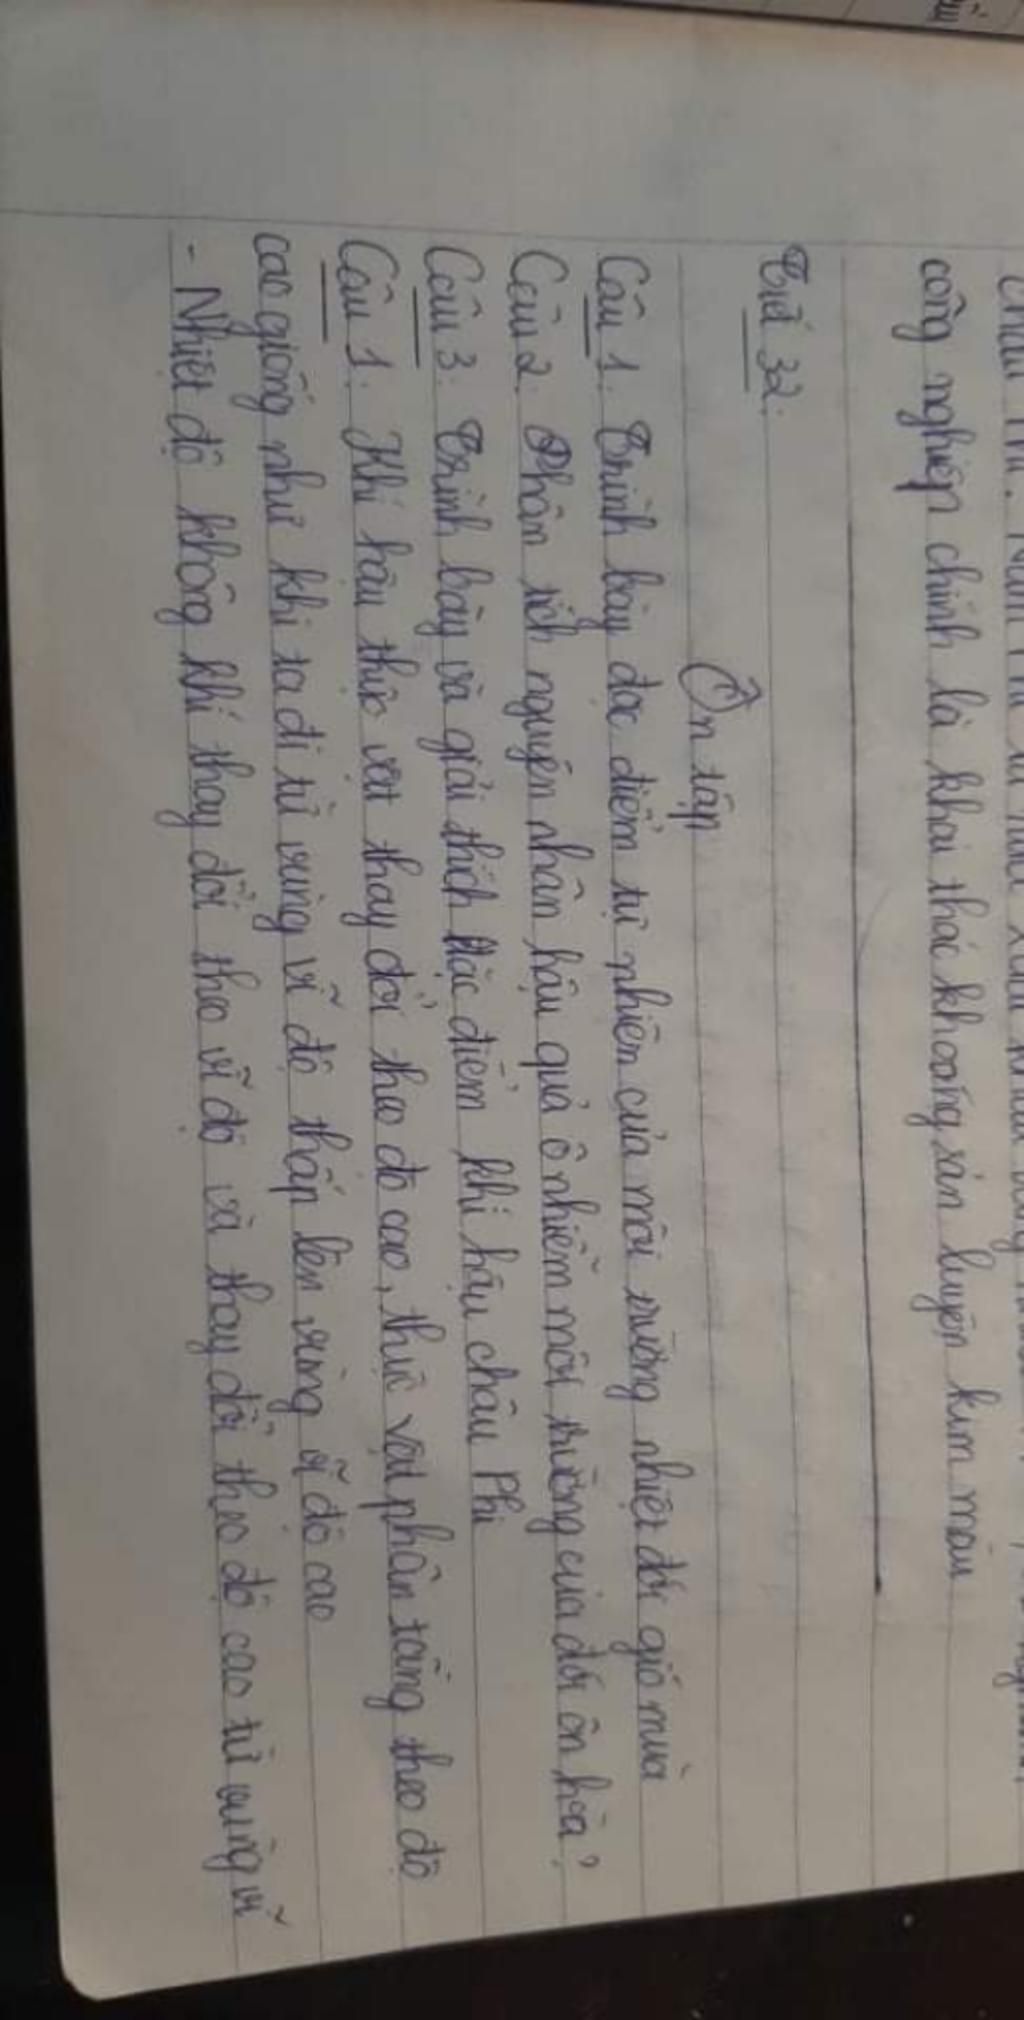 công nghiệp chính là khai thác khoáng sản luyện kim màu
Tiết 32.
Ôn tập
Câu 1. Trình bày đặc điểm tự nhiên của môi trường nhiệt đới gió mùa
Câu 2. Phân tích nguyên nhân hậu quả ô nhiễm môi trường của đới ôn hòa?
Câu 3. Trình bày và giải thích đặc điểm khí hậu châu Phi
Câu 1. Khí hậu thực vật thay đổi theo độ cao, thực vật phân tầng theo độ
cao giống như khi ta đi từ vùng vĩ độ thấp lên vùng vĩ độ cao
- Nhiệt độ không khí thay đổi theo vĩ độ và thay đổi theo độ cao từ vùng vĩ